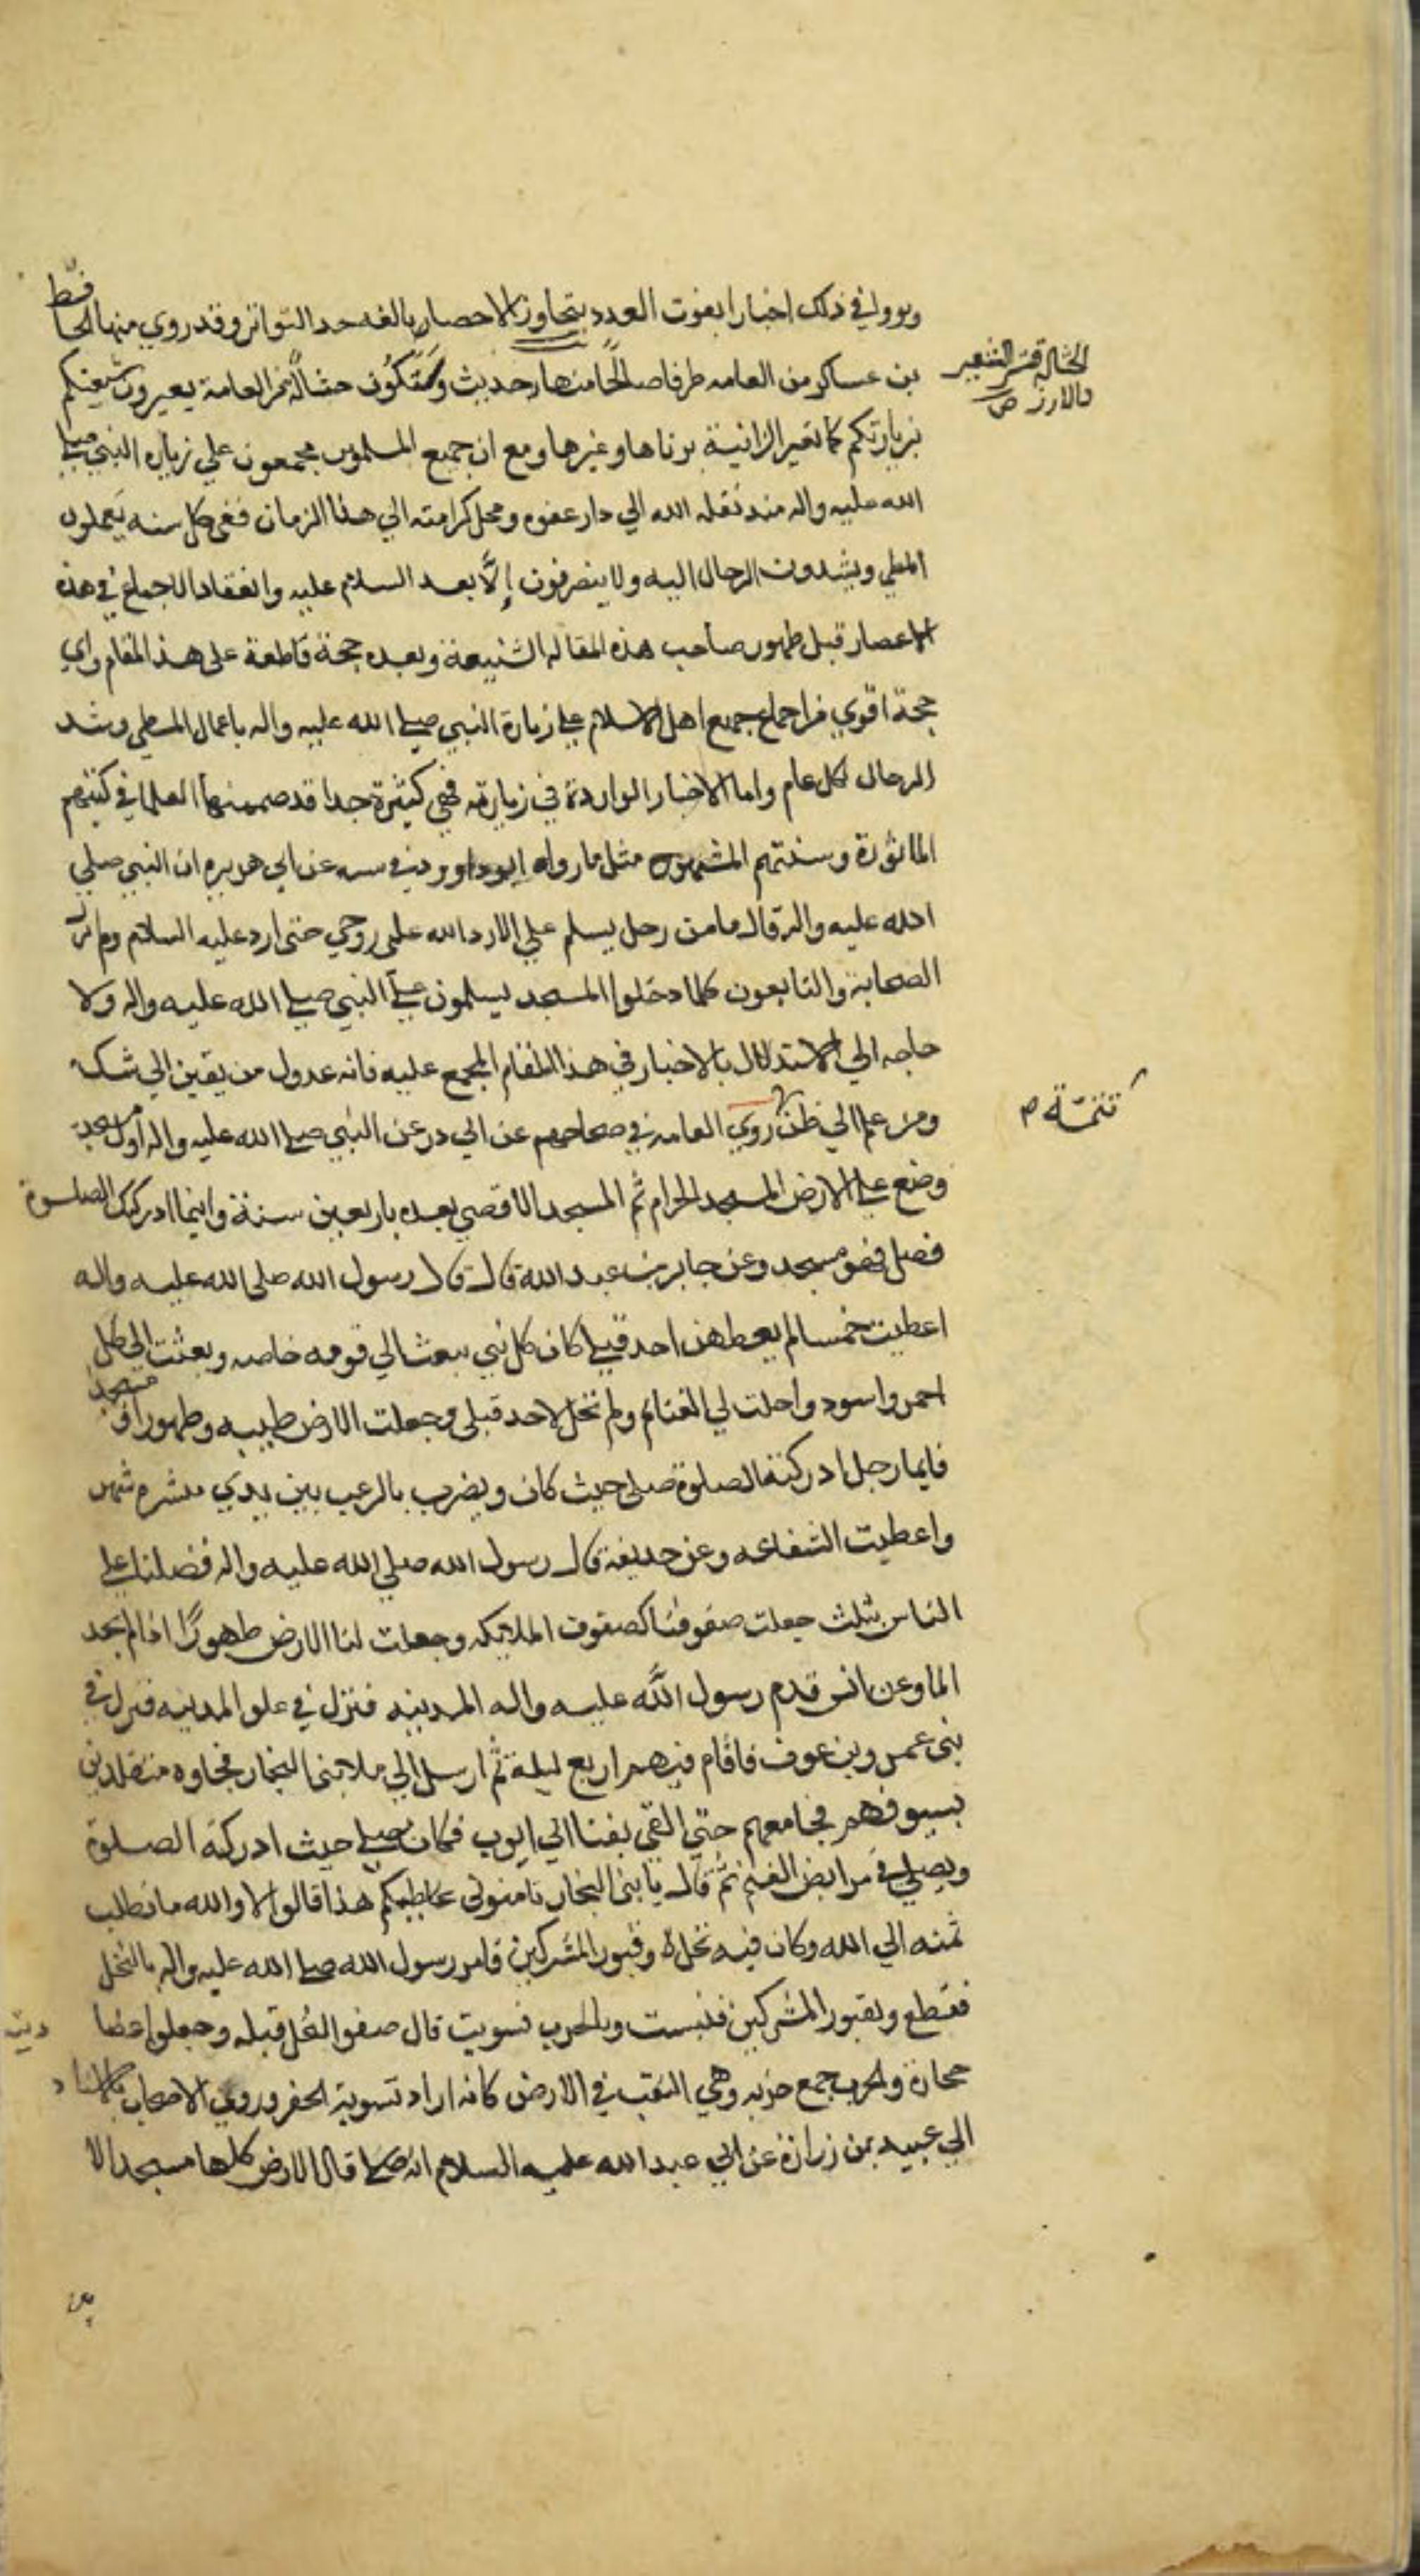 ورووا في ذلك اخبارا يفوت العدد بتجاوز الاحصار بالغه حد التواتر وقد روي منها الحافظ
بن عساكر من العامه طرفا صالحا منها حديث وستكون حثالة من العامة يعيرون شيعتكم
بزيارتكم كما تعير الزانية بزناها وغيرها ومع ان جميع المسلمون مجمعون علي زياره النبي صلي
الله عليه واله منذ نقله الله الي دار عفوه ومحل كرامته الي هذا الزمان ففي كل سنه يعملون
المطي ويشدون الرحال اليه ولا ينصرفون إلَّا بعد السلام عليه وانعقاد الاجماع في هذه
الاعصار قبل ظهور صاحب هذه المقاله الشنيعة وبعده حجة قاطعة على هذ المقام واي
حجة اقوي من اجماع جميع اهل الاسلام علي زيارة النبي صلي الله عليه واله باعمال المطي وشد
الرحال لكل عام واما الاخبار الواردة في زيارته فهي كثيرة جدا قد ضمنها العلما في كتبهم
الماثورة وسننهم المشهوره مثل ما رواه ابو داوود في سننه عن ابي هريره ان النبي صلي
الله عليه واله قال ما من رجل يسلم علي الا رد الله علي روحي حتى ارد عليه السلام ولم تزل
الصحابة والتابعون كلما دخلوا المسجد يسلمون علي النبي صلي الله عليه واله ولا
حاجه الي الاستدلال بالاخبار في هذا المقام المجمع عليه فانه عدول من يقين الي شك
ومن علم الي ظن روي العامه في صحاحهم عن ابي ذر عن النبي صلي الله عليه واله اول مسجد
وضع علي الارض المسجد الحرام ثم المسجد الاقصي بعده باربعين سنة واينما ادركك الصلوة
فصل فهو مسجد وعن جابر بن عبد الله قال قال رسول الله صلى الله عليه واله
اعطيت خمسا لم يعطهن احد قبلي كان كل نبي يبعث الي قومه خاصه وبعثت الي كل
احمر واسود واحلت لي الغنائم ولم تحل لاحد قبلى وجعلت الارض طيبه وطهورا و مسجد
فايما رجل ادركته الصلوة صلى حيث كان ويضرب بالرعب بين يدي مسيرة شهر
واعطيت الشفاعه وعن حديفة قال رسول الله صلي الله عليه واله فضلنا علي
الناس بثلث جعلت صفوفنا كصفوف الملايكه وجعلت لنا الارض طهورًا اذا لم نجد
الما وعن انس قدم رسول اللَّه عليه واله المدينه فنزل في علو المدينه فنزل في
بنى عمرو بن عوف فاقام فيهم اربع ليلة ثم ارسل الي ملا بني النجار فجاوه متقلدين
بسيوفهم فجا معهم حتي القي بفنا ابي ايوب فكان يصلي حيث ادركته الصلوة
ويصلي في مرابض الغنم ثم قال يا بني النجار ثامنوني بحايطكم هذا قالوا لا والله ما نطلب
ثمنه الي الله وكان فيه نخل وقبور المشركين فامر رسول الله صلي الله عليه واله بالنخل
فقطع وبقبور المشركين فنبست وبالحرب فسويت قال صفوا النخل قبله وجعلوا عضا ديته
حجارة والحرب جمع خربه وهي النقب في الارض كانه اراد تسوية الحفر وروي الاصحاب بالاسناد
الي عبيد بن زرارة عن ابي عبد الله عليه السلام انه قال الارض كلها مسجد الا
الحثاله قشر الشعير
والارز ص
تتمة م